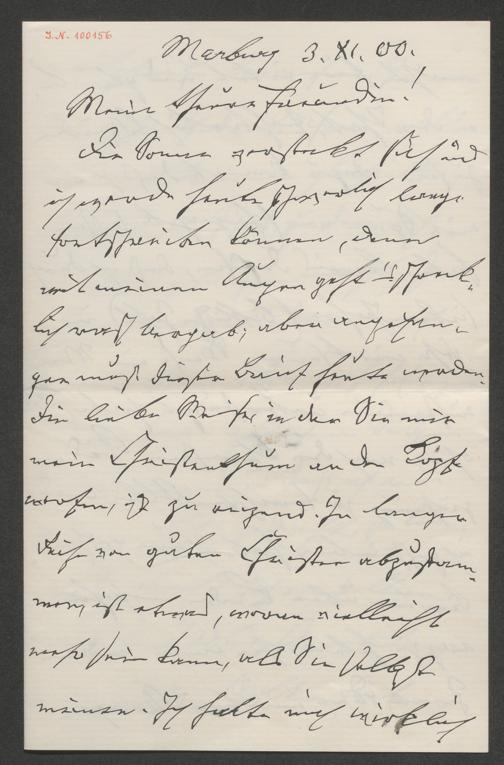 J.N. 100156
Marburg 3. XI. 00.
Meine theure Freundin!
Die Sonne versteckt sich und
ich werde heute schwerlich lange
fortschreiben können, denn
mit meinen Augen geht's schreck-
lich rasch bergab; aber angefan-
gen muß dieser Brief heute werden.
Die liebe Weise, in der Sie mir
mein Christenthum an den Kopf
werfen, ist zu reizend. In langer
Reihe von guten Christen abzustam-
men, ist etwas, woran vielleicht
mehr sein kann, als Sie selbst
meinen. Ich halte mich wirklich